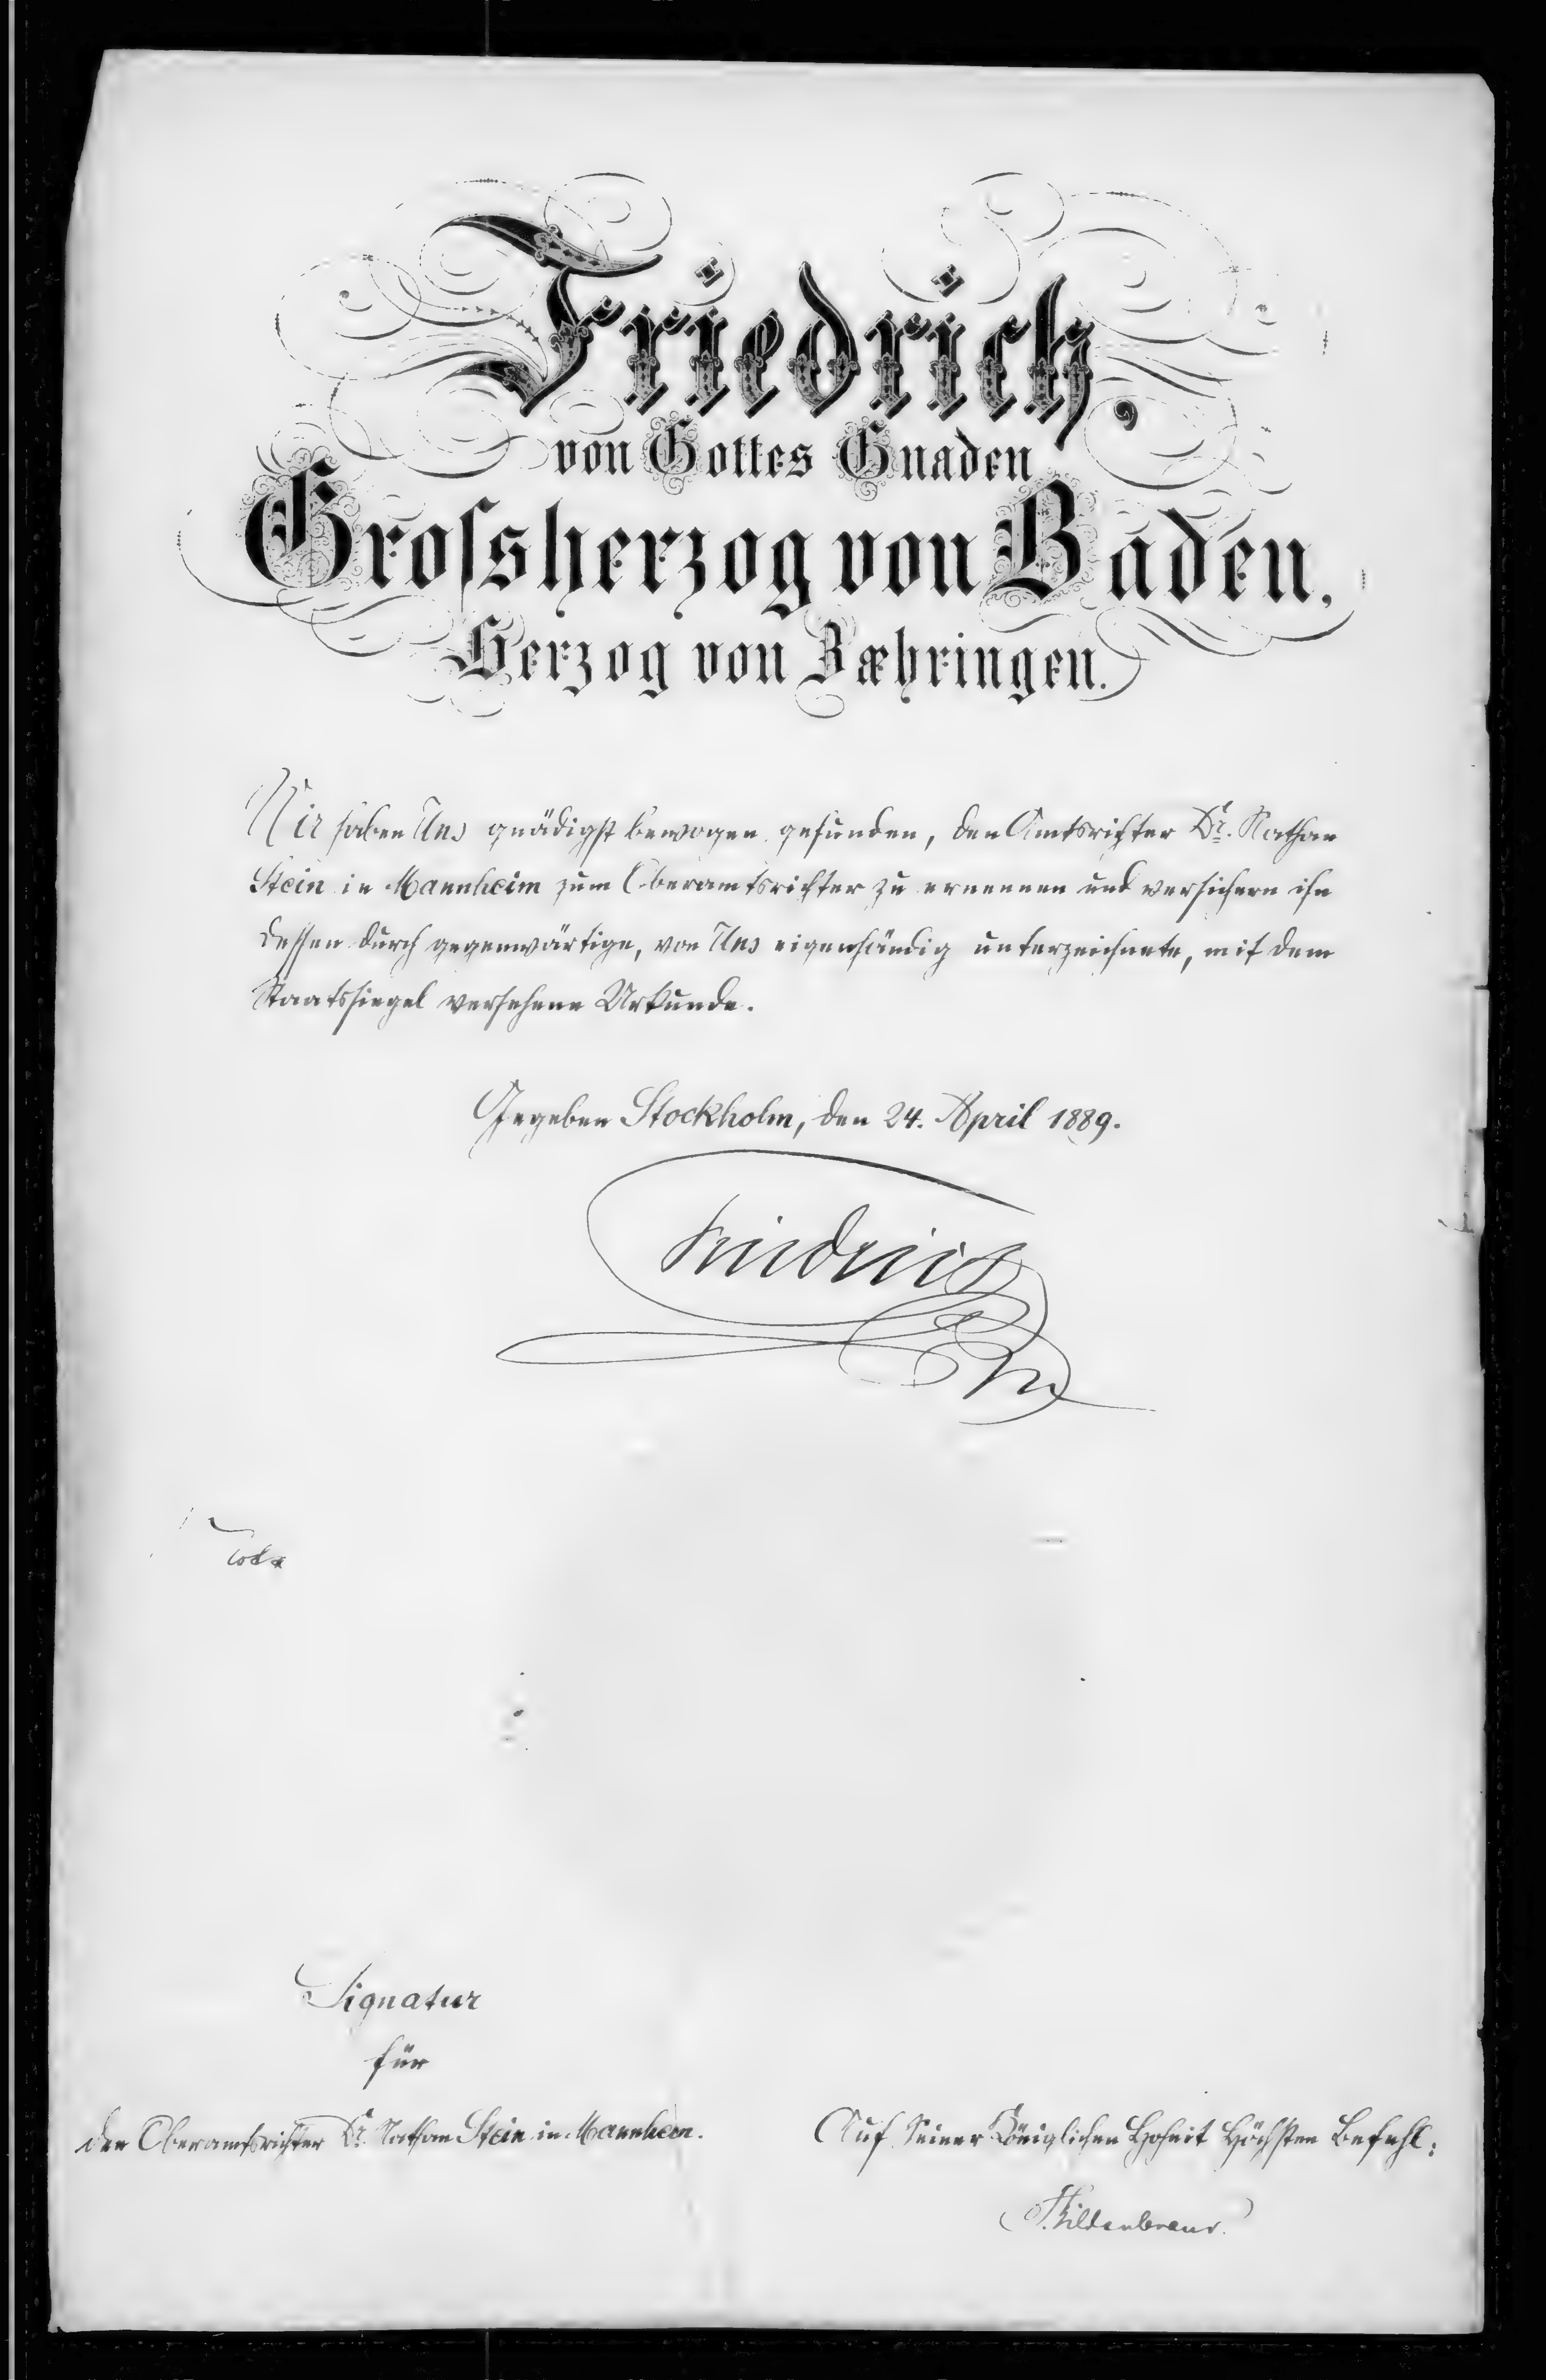 Friedrich,
von Gottes Gnaden
Grossherzog von Baden,
Herzog von Zæhringen.
Wir haben Uns gnädigst bewogen gefunden, den Amtsrichter Dr. Nathan
Stein in Mannheim zum Oberamtsrichter zu ernennen und versichern ihn
dessen durch gegenwärtige, von Uns eigenhändig unterzeichnete, mit dem
Staatssiegel versehene Urkunde.
Gegeben Stockholm, den 24. April 1889.
Friedrich
Signatur
für
den Oberamtsrichter Dr. Nathan Stein in Mannheim.
Auf Seiner Königlichen Hoheit Höchsten Befehl:
Hildenbrand.